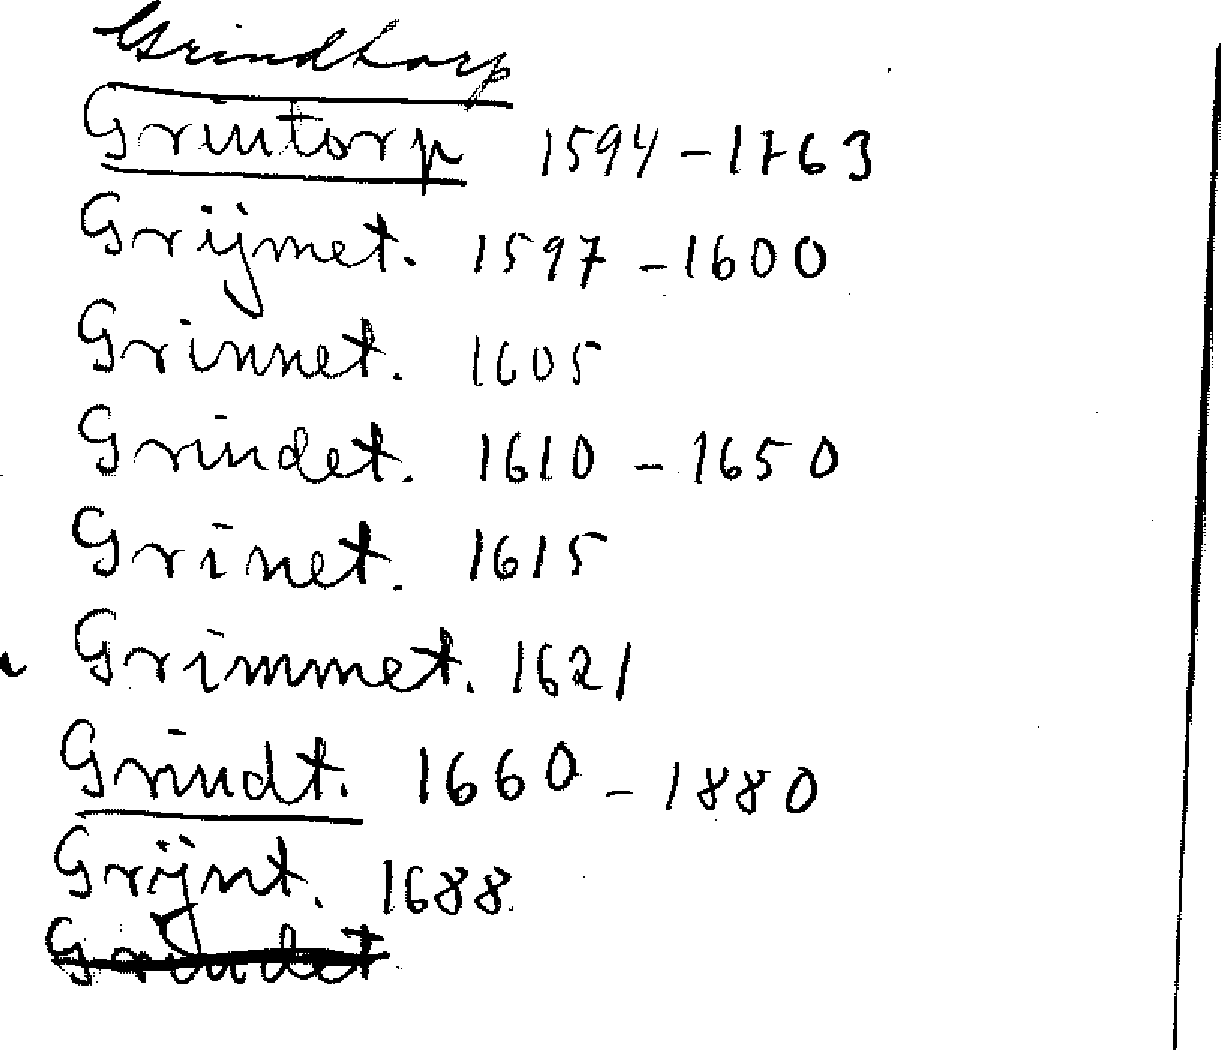 Grindtorp
Grintorp 1594-1763
Grijmet. 1597-1600
Grinnet. 1605
Grindet. 1610-1650
Grinet. 1615
Grimmet. 1621
Grindt. 1660-1880
Grijnt. 1688
Grindet